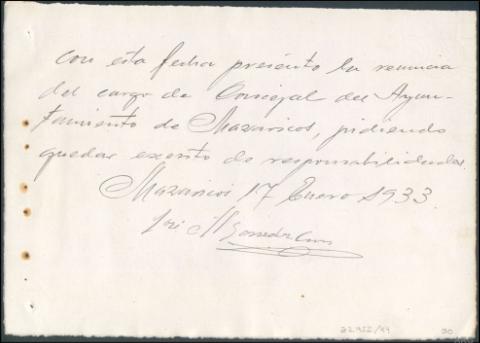 Con esta fecha presento la renuncia
del cargo de Concejal del Ayun-
tamiento de Mazaricos, pidiendo
quedar exento de responsabilidades
Mazaricos 17 Enero 1933
José M
22.952/49
30